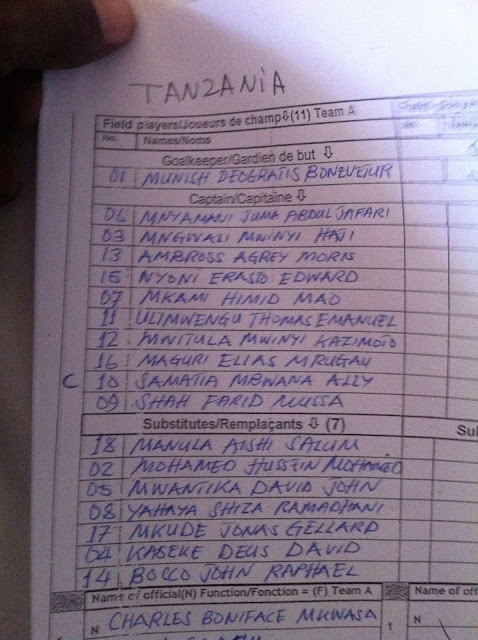 TANZANIA
Field players/Joueurs de champ⇩(11) Team A
No. Names/Noms
Goalkeeper/Gardien de but ⇩
01 MUNISH DEOGRATIS BONEVETUR
Captain/Capitaine ⇩
06 MNYAMANI JUMA ABDUL JAFARI
03 MNGWALI MWINYI HAJI
13 AMBROSS AGREY MORIS
15 NYONI ERASTO EDWARD
07 MKAMI HIMID MAO
11 ULIMWENGU THOMAS EMANUEL
12 MWITULA MWINYI KAZIMOTO
16 MAGURI ELIAS MRUGAU
C 10 SAMATTA MBWANA ALLY
09 SHAH FARID MUSSA
Substitutes/Remplaçants ⇩ (7)
18 MANULA AISHI SALUM
02 MOHAMED HUSSEIN MOHAMED
05 MWANTIKA DAVID JOHN
08 YAHAYA SHIZA RAMADHANI
17 MKUDE JONAS GELLARD
04 KASEKE DEUS DAVID
14 BOCCO JOHN RAPHAEL
Name of official(N) Function/Fonction = (F) Team A
Name of off
N CHARLES BONIFACE MKWASA
1 N